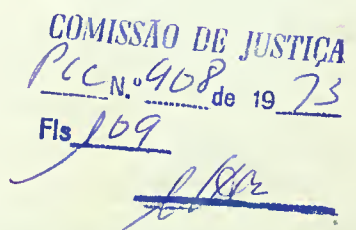 COMISSÃO DE JUSTIÇA
PLC N.º 908 de 19 73
Fls 109